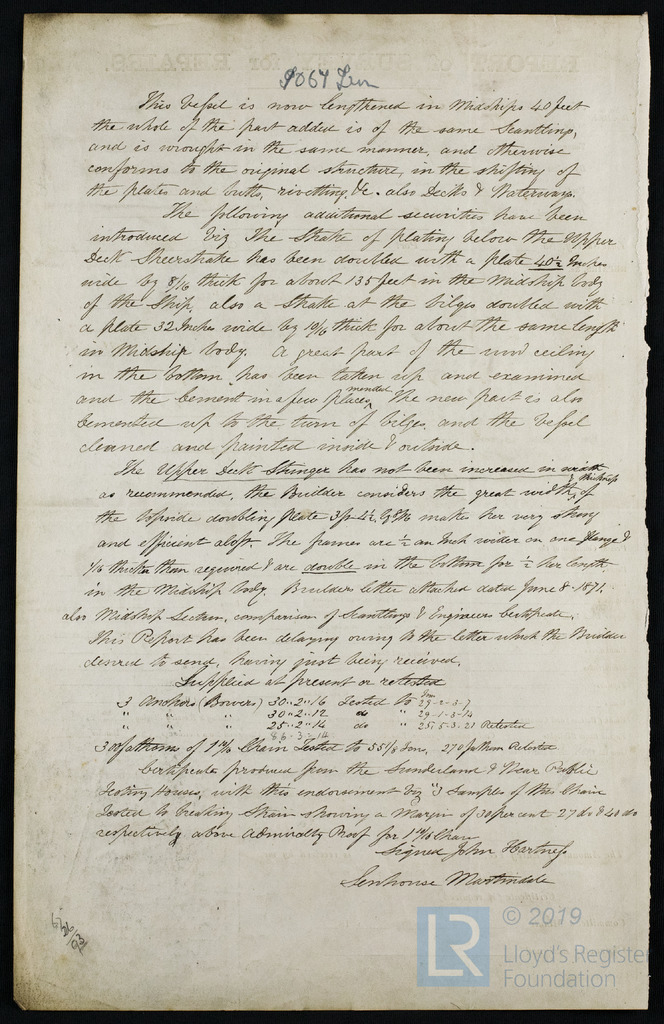 9064 Iron
This Vessel is now lengthened in Midships 40 feet
the whole of the part added is of the same Scantlings,
and is wrought in the same manner, and otherwise
conforms to the original structure, in the shifting of
the plates and butts, rivetting, &c. also Decks & Waterways.
The following additional securities have been
introduced Viz The Strake of plating below the Upper
Deck Sheerstrake has been doubled with a plate 40½ Inches
wide by 8/16 thick for about 135 feet in the Midship body
of the Ship, also a Strake at the bilges doubled with
a plate 32 Inches wide by 10/16 thick for about the same length
in Midship body. A great part of the wood ceiling
in the bottom has been taken up and examined
and the cement in a few places mended, The new part is also
cemented up to the turn of bilges, and the Vessel
cleaned and painted inside & outside.
The Upper Deck Stringer has not been increased in width
as recommended, the Builder considers the great width & thickness of
the topside doubling plate makes her very strong
and efficient aloft. The frames are ½ an Inch wider on one flange &
1/16 thicker than required & are double in the bottom for ½ her length
in the Midship body. Builders letter attached dated June 8. 1871.
also Midship Section, comparison of Scantlings & Engineers Certificate.
This Report has been delaying owing to the letter which the Builder
desired to send, having just being received.
Supplied at present or retested
3 Anchors (Bowers) 30 " 2 " 16 Tested to 29-2-3-7
" " " 30 " 2 " 12 do " 29-1-3-14
" " " 25 " 2 " 14 do " 25-5-3-21 Retested
86-3-14
30 fathoms of 1 Chain Tested to 55 Tons, 270 fathom Retested
Certificate produced from the Sunderland & Wear Public
Testing Houses, with this endorsement viz "3 Samples of this Chain
Tested to breaking Strain showing a Margin of 30 per cent 27 do & 40 do
respectively above Admiralty Proof for Chain
Signed John Hartness
Senhouse Martindale
© 2019
LR
Lloyd's Register
Foundation